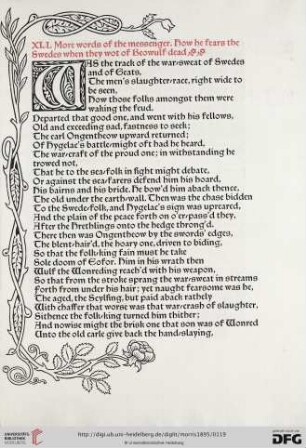 XLI. More words of the messenger. How he fears the
Swedes when they wot of Beowulf dead
WAS the track of the war-sweat of Swedes
and of Geats,
The men's slaughter-race, right wide to
be seen,
How those folks amongst them were
waking the feud.
Departed that good one, and went with his fellows,
Old and exceeding sad, fastness to seek;
The earl Ongentheow upward returned;
Of Hygelac's battle-might oft had he heard,
The war-craft of the proud one; in withstanding he
trowed not,
That he to the sea-folk in fight might debate,
Or against the sea-farers defend him his hoard,
his bairns and his bride. He bow'd him aback thence,
The old under the earth-wall. Then was the chase bidden
To the Swede-folk, and Hygelac's sign was upreared,
And the plain of the peace forth on o'er-pass'd they,
After the Hrethlings onto the hedge throng'd.
There then was Ongentheow by the swords' edges,
The blent-hair'd, the hoary one, driven to biding,
So that the folk-king fain must he take
Sole doom of Eofor. Him in his wrath then
Wulf the Wonreding reach'd with his weapon,
So that from the stroke sprang the war-sweat in streams
forth from under his hair; yet naught fearsome was he,
The aged, the Scylfing, but paid aback rathely
With chaffer that worse was that war-crash of slaughter,
Sithence the folk-king turned him thither;
And nowise might the brisk one that son was of Wonred
Unto the old carle give back the hand-slaying,
UNIVERSITÄTS-
BIBLIOTHEK
HEIDELBERG
http://digi.ub.uni-heidelberg.de/diglit/morris1895/0119
© Universitätsbibliothek Heidelberg
gefördert durch die
DFG